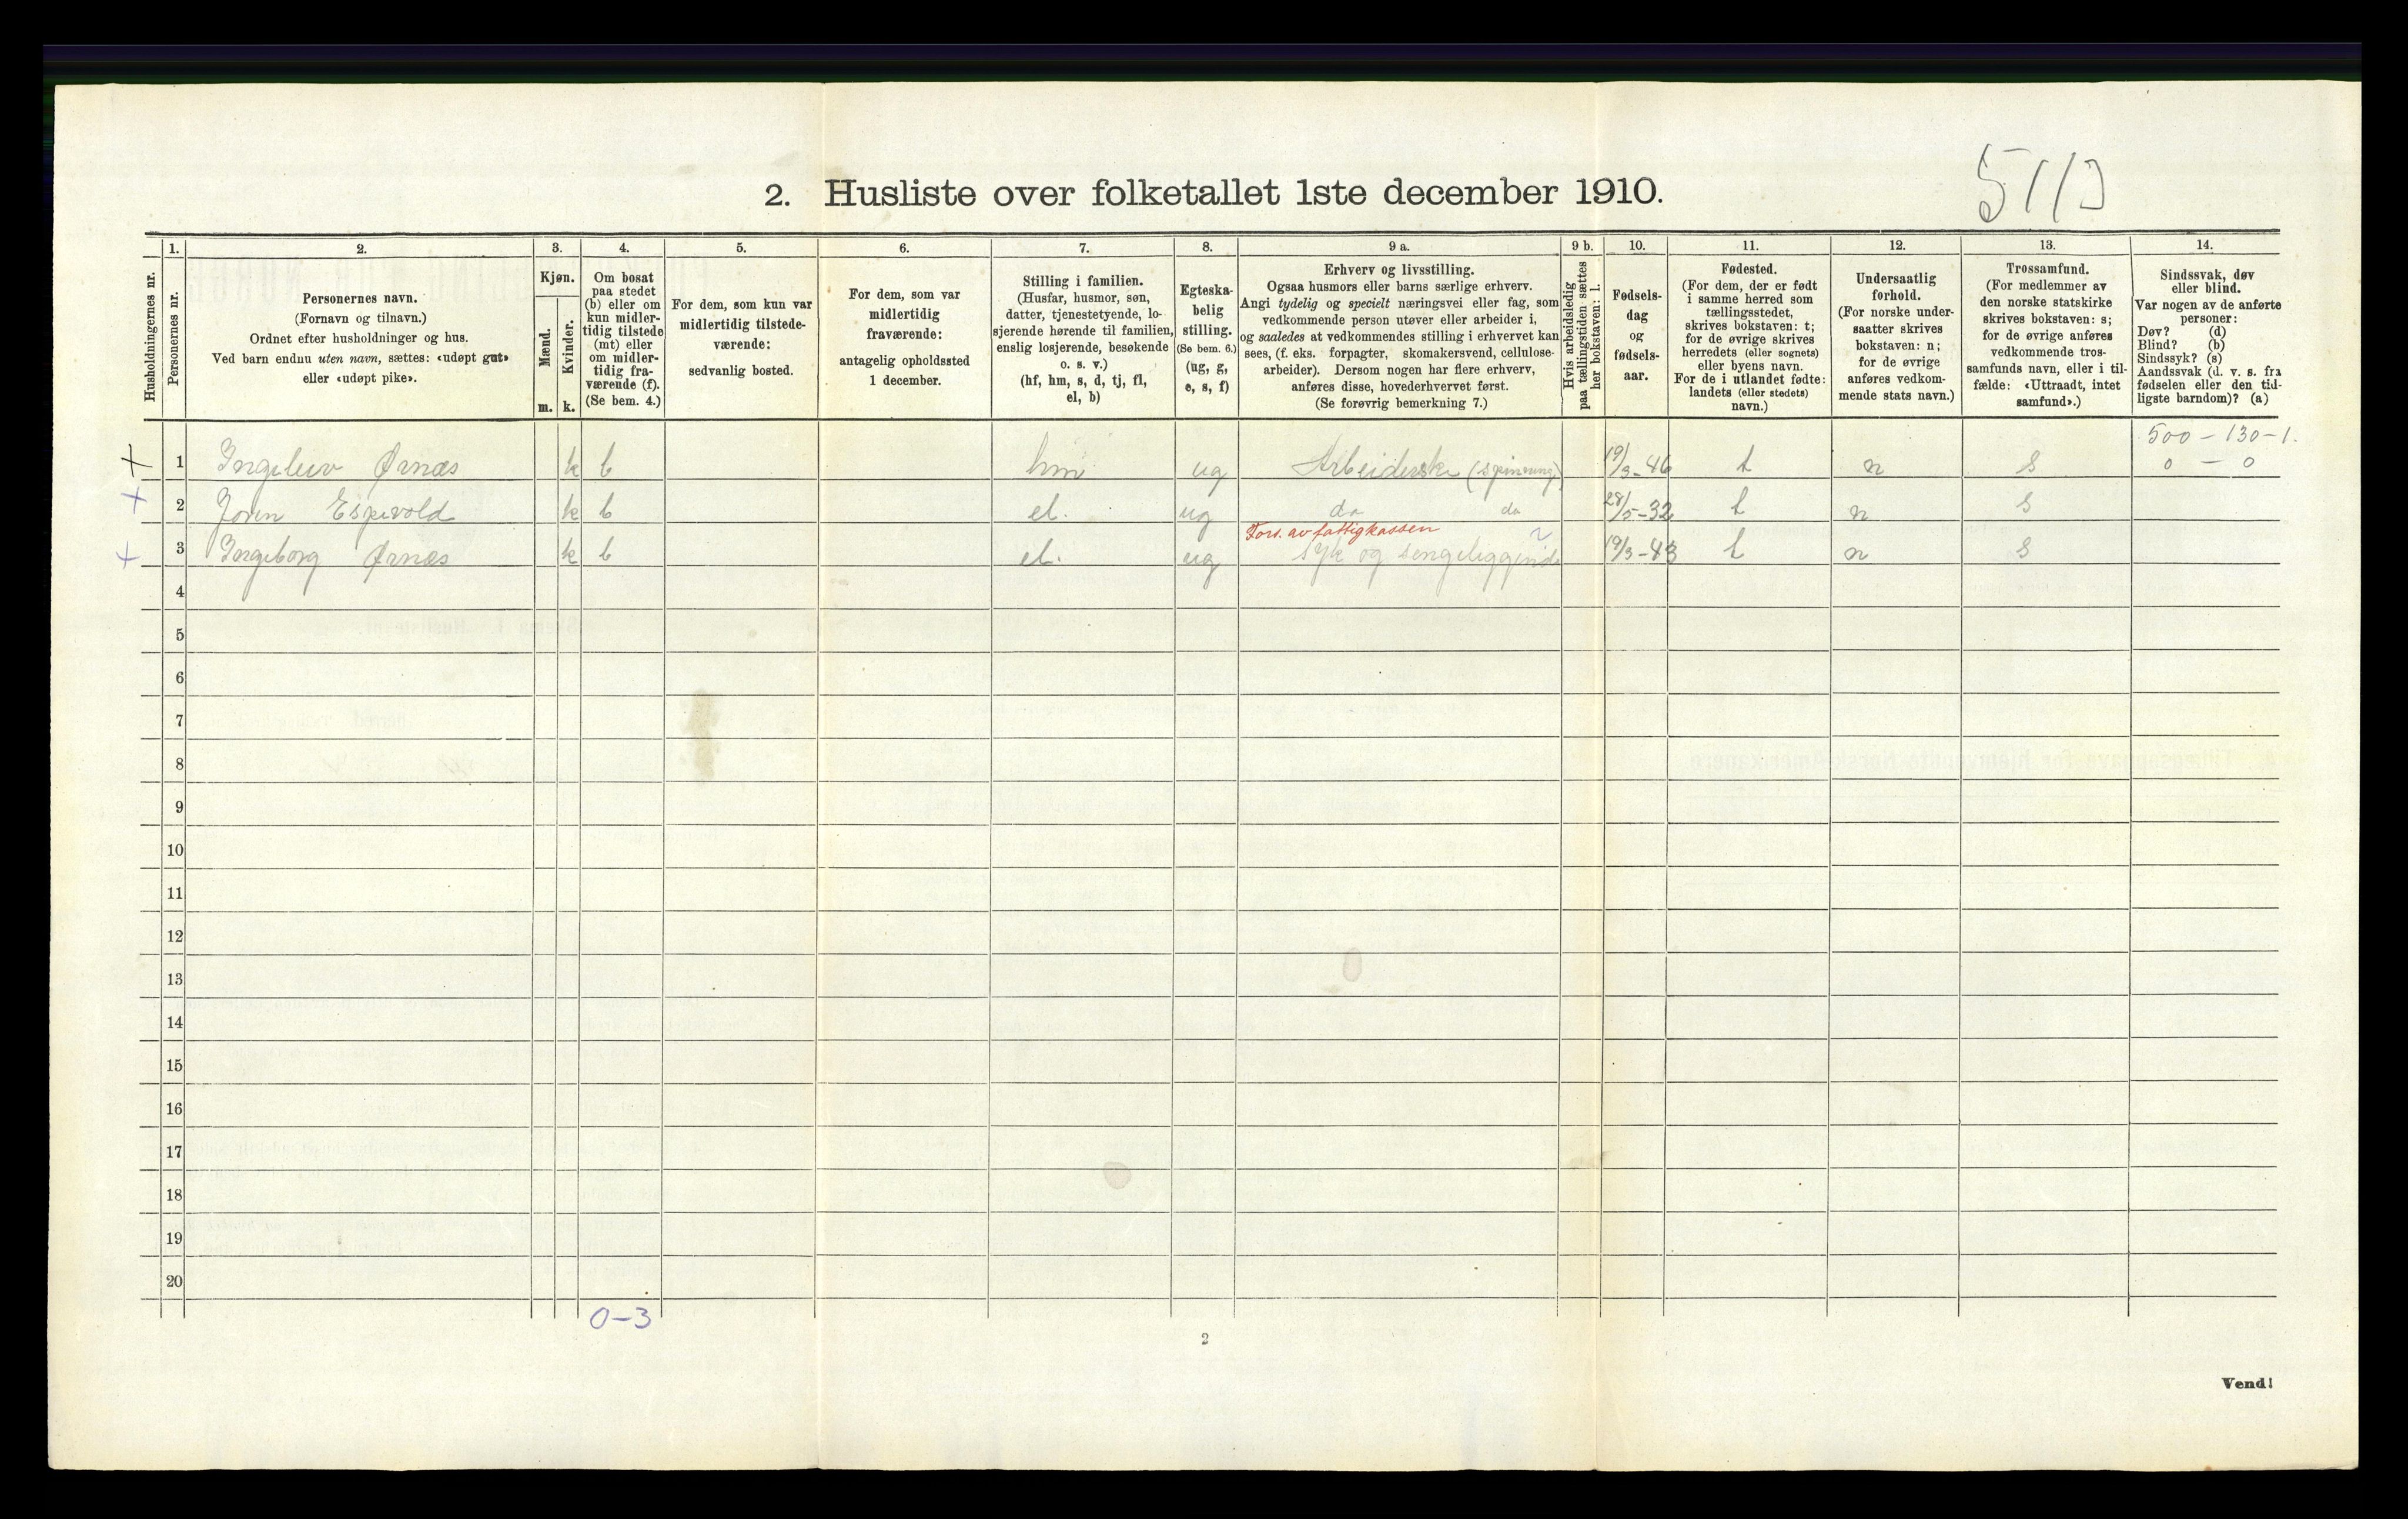 2. Husliste over folketallet 1ste december 1910.
Husholdningernes nr.
1.
Personernes nr.
2.
Personernes navn.
(Fornavn og tilnavn.)
Ordnet efter husholdninger og hus.
Ved barn endnu uten navn, sættes: «udøpt gut»
eller «udøpt pike».
3.
Kjøn.
Mænd.
Kvinder.
m. k.
4.
Om bosat
paa stedet
(b) eller om
kun midler-
tidig tilstede
(mt) eller
om midler-
tidig fra-
værende (f).
(Se bem. 4.)
5.
For dem, som kun var
midlertidig tilstede-
værende:
sedvanlig bosted.
6.
For dem, som var
midlertidig
fraværende:
antagelig opholdssted
1 december.
7.
Stilling i familien.
(Husfar, husmor, søn,
datter, tjenestetyende, lo-
sjerende hørende til familien,
enslig losjerende, besøkende
o. s. v.)
(hf, hm, s, d, tj, fl,
el, b)
8.
Egteska-
belig
stilling.
(Se bem. 6.)
(ug, g,
e, s, f)
9 a.
Erhverv og livsstilling.
Ogsaa husmors eller barns særlige erhverv.
Angi tydelig og specielt næringsvei eller fag, som
vedkommende person utøver eller arbeider i,
og saaledes at vedkommendes stilling i erhvervet kan
sees, (f. eks. forpagter, skomakersvend, cellulose-
arbeider). Dersom nogen har flere erhverv,
anføres disse, hovederhvervet først.
(Se forøvrig bemerkning 7.)
9 b.
Hvis arbeidsledig
paa tællingstiden sættes
her bokstaven: l.
10.
Fødsels-
dag
og
fødsels-
aar.
11.
Fødested.
(For dem, der er født
i samme herred som
tællingsstedet,
skrives bokstaven: t;
for de øvrige skrives
herredets (eller sognets)
eller byens navn.
For de i utlandet fødte:
landets (eller stedets)
navn.)
12.
Undersaatlig
forhold.
(For norske under-
saatter skrives
bokstaven: n;
for de øvrige
anføres vedkom-
mende stats navn.)
13.
Trossamfund.
(For medlemmer av
den norske statskirke
skrives bokstaven: s;
for de øvrige anføres
vedkommende tros-
samfunds navn, eller i til-
fælde: «Uttraadt, intet
samfund».)
14.
Sindssvak, døv
eller blind.
Var nogen av de anførte
personer:
Døv? (d)
Blind? (b)
Sindssyk? (s)
Aandssvak (d. v. s. fra
fødselen eller den tid-
ligste barndom)? (a)
500 - 130 - 1.
1 Ingeleiv Ørnæs k b hm ug Arbeiderske (spinning) 19/3-46 t n s 0 - 0
2 Espevold k b el. ug do do 28/5-32 t n s
Fors. av fattigkassen
3 Ingeborg Ørnæs k b el. ug syk og sengeliggende 19/3-43 t n s
4
5
6
7
8
9
10
11
12
13
14
15
16
17
18
19
20
0-3
2
Vend!